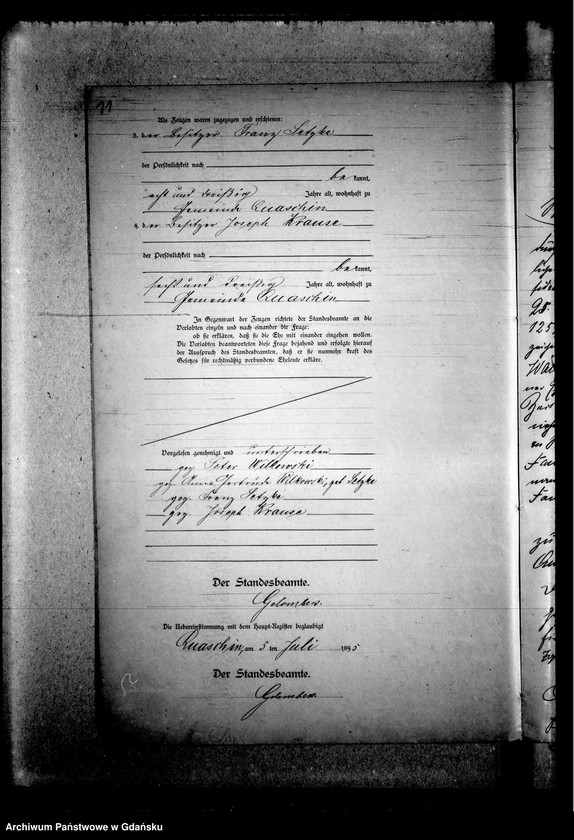 11
Als Zeugen waren zugezogen und erschienen:
3. der Besitzer Franz Setzke
der Persönlichkeit nach
be kannt,
acht und dreißig Jahre alt, wohnhaft zu
Gemeinde Quaschin
4. der Besitzer Joseph Krause
der Persönlichkeit nach
be kannt,
sechs und dreißig Jahre alt, wohnhaft zu
Gemeinde Quaschin
In Gegenwart der Zeugen richtete der Standesbeamte an die
Verlobten einzeln und nach einander die Frage:
ob sie erklären, daß sie die Ehe mit einander eingehen wollen.
Die Verlobten beantworteten diese Frage bejahend und erfolgte hierauf
der Ausspruch des Standesbeamten, daß er sie nunmehr kraft des
Gesetzes für rechtmäßig verbundene Eheleute erkläre.
Vorgelesen genehmigt und unterschrieben
gez. Peter Wilkowski
gez. Anna Gertrude Wilkowski, geb. Setzke
gez. Franz Setzke
gez. Joseph Krause
Der Standesbeamte.
Die Uebereinstimmung mit dem Haupt-Register beglaubigt
Quaschin, am 5 ten Juli 1895
Der Standesbeamte.
28.
125.
Fam
zu
Archiwum Państwowe w Gdańsku